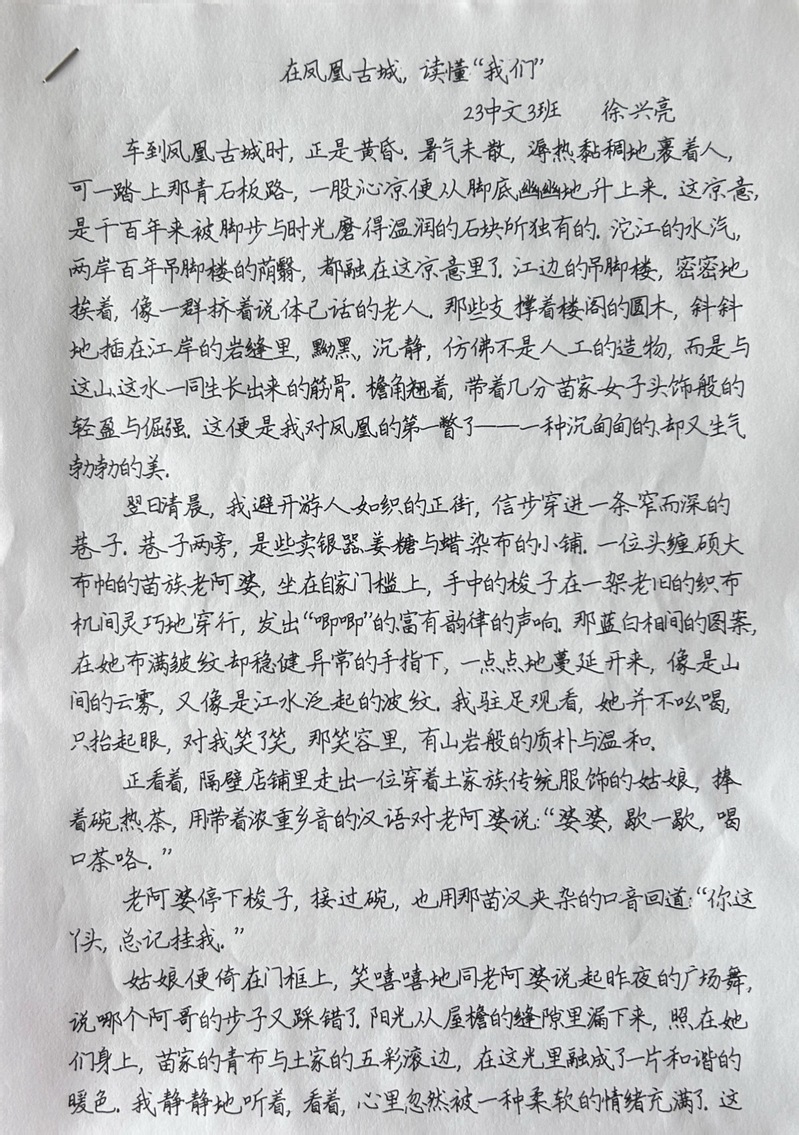 在凤凰古城，读懂“我们”
23中文3班 徐兴亮
车到凤凰古城时，正是黄昏．暑气未散，溽热黏稠地裹着人，
可一踏上那青石板路，一股沁凉便从脚底幽幽地升上来．这凉意，
是千百年来被脚步与时光磨得温润的石块所独有的．沱江的水汽，
两岸百年吊脚楼的荫翳，都融在这凉意里了．江边的吊脚楼，密密地
挨着，像一群挤着说体己话的老人．那些支撑着楼阁的圆木，斜斜
地插在江岸的岩缝里，黝黑，沉静，仿佛不是人工的造物，而是与
这山这水一同生长出来的筋骨．檐角翘着，带着几分苗家女子头饰般的
轻盈与倔强．这便是我对凤凰的第一瞥了——一种沉甸甸的、却又生气
勃勃的美．
翌日清晨，我避开游人如织的正街，信步穿进一条窄而深的
巷子．巷子两旁，是些卖银器、姜糖与蜡染布的小铺．一位头缠硕大
布帕的苗族老阿婆，坐在自家门槛上，手中的梭子在一架老旧的织布
机间灵巧地穿行，发出“唧唧”的、富有韵律的声响．那蓝白相间的图案，
在她布满皱纹却稳健异常的手指下，一点点地蔓延开来，像是山
间的云雾，又像是江水泛起的波纹．我驻足观看，她并不吆喝，
只抬起眼，对我笑了笑，那笑容里，有山岩般的质朴与温和．
正看着，隔壁店铺里走出一位穿着土家族传统服饰的姑娘，捧
着碗热茶，用带着浓重乡音的汉语对老阿婆说：“婆婆，歇一歇，喝
口茶咯．”
老阿婆停下梭子，接过碗，也用那苗汉夹杂的口音回道：“你这
丫头，总记挂我．”
姑娘便倚在门框上，笑嘻嘻地同老阿婆说起昨夜的广场舞，
说哪个阿哥的步子又踩错了．阳光从屋檐的缝隙里漏下来，照在她
们身上，苗家的青布与土家的五彩滚边，在这光里融成了一片和谐的
暖色．我静静地听着，看着，心里忽然被一种柔软的情绪充满了．这